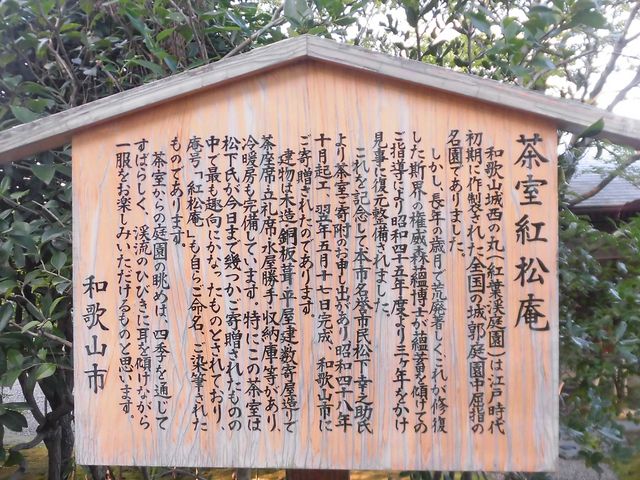 茶室紅松庵
和歌山城西の丸（紅葉渓庭園）は江戸時代
初期に作製された全国の城郭庭園中屈指の
名園でありました。
しかし、長年の歳月で荒廃著しくこれが修復
した斯界の権威森蘊博士が蘊蓄を傾けての
ご指導により昭和四十五年度より三ヶ年をかけ
見事に復元整備されました。
これを記念して本市名誉市民松下幸之助氏
より茶室ご寄附のお申し出があり昭和四十八年
十月起工、翌年五月十七日完成、和歌山市に
ご寄贈されたのであります。
建物は木造、銅板葺、平屋建数寄屋造りで
茶座席、立礼席、水屋勝手、収納庫等があり、
冷暖房も完備しています。特にこの茶室は
松下氏が今日まで幾つかご寄贈されたものの
中で最も趣向にかなったものとされており、
庵号「紅松庵」も自らご命名、ご染筆された
ものであります。
茶室からの庭園の眺めは、四季を通じて
すばらしく、渓流のひびきに耳を傾けながら
一服をお楽しみいただけるものと思います。
和歌山市